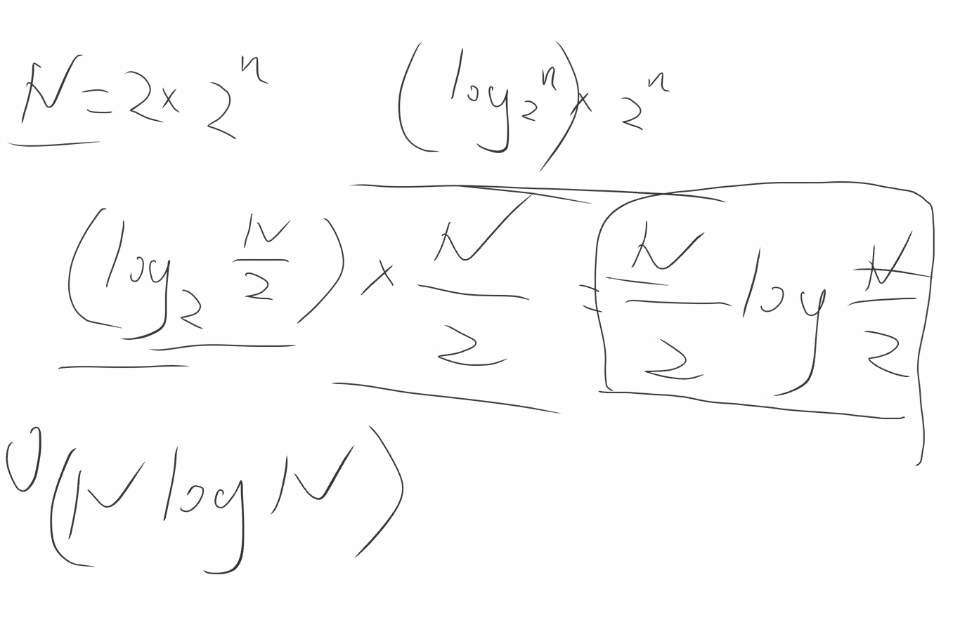 N = 2 × 2^n (log 2^n) × 2^n
(log_2 N/2) × N/2 = N/2 log N/2
O(N log N)